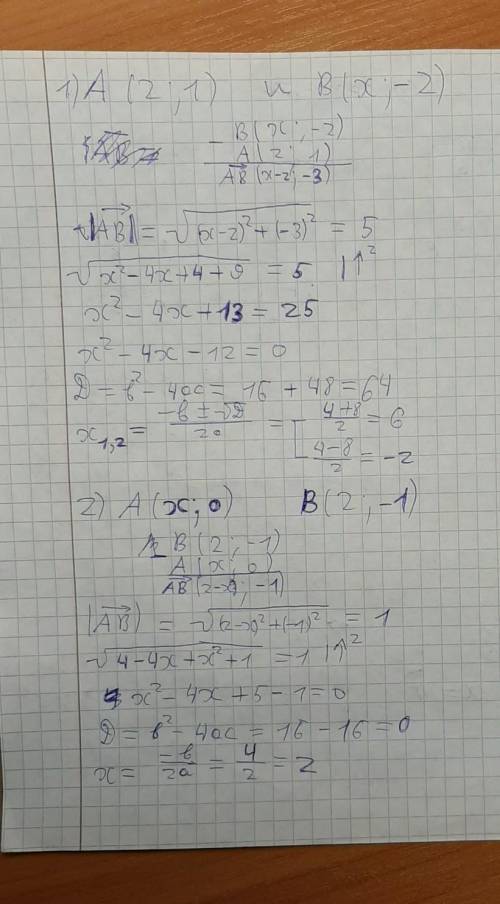 1) A (2 ; 1) и B(x ; -2)
- B(x ; -2)
A(2 ; 1)
AB (x-2; -3)
|AB| = √((x-2)²+(-3)²) = 5
√(x²-4x+4+9) = 5 |↑²
x² - 4x + 13 = 25
x² - 4x - 12 = 0
D = b² - 4ac = 16 + 48 = 64
x₁,₂ = (-b ± √D)/2a = [ (4+8)/2 = 6
(4-8)/2 = -2
2) A (x; 0) B(2 ; -1)
B(2 ; -1)
A(x ; 0)
AB (2-x ; -1)
|AB| = √((2-x)²+(-1)²) = 1
√(4-4x+x²+1) = 1 |↑²
x² - 4x + 5 - 1 = 0
D = b² - 4ac = 16 - 16 = 0
x = -b/2a = 4/2 = 2